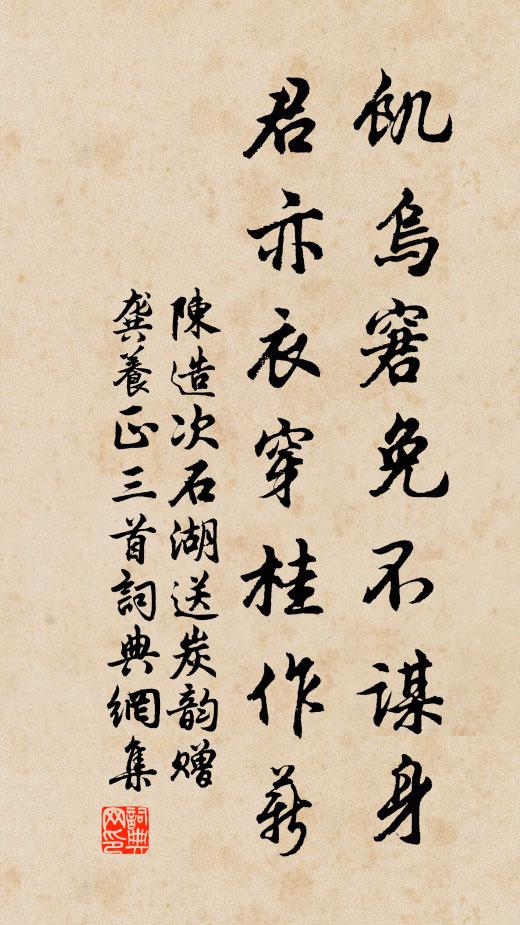 飢烏窘兔不謀身
君亦衣穿桂作薪
陳造次石湖送炭韵贈
龔養正三首詞典網集
詞典网印